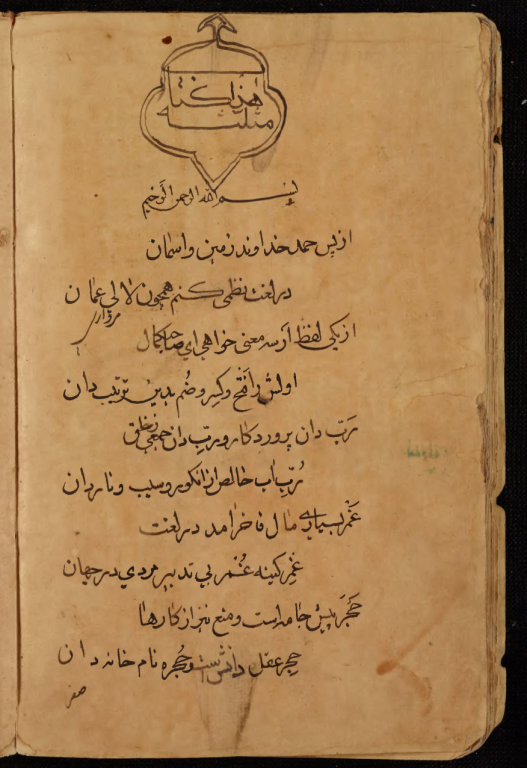 هذا كتاب
مثلثه
بسم الله الرحمن الرحيم
از پس حمد خداوند زمین و اسمان
در لغت نظمی کنم همچون لالی عمان
مروارید
از یکی لفظ ار سه معنی خواهی ای صاحب کمال
اولش را فتح و کسر و ضم بدین ترتیب دان
رَب دان پروردکار و رِب دان جمعی
رُب اب خالص از انکور و سیب و نار دان
غَمر بسیاری مال فاخر امد در لغت
غِمر کینه غُمر بی تدبیر مردی در جهان
حَجر پیش جامه است و منع نیز از کارها
حِجر عقل و دانش است و حُجره نام خانه دان
صفر